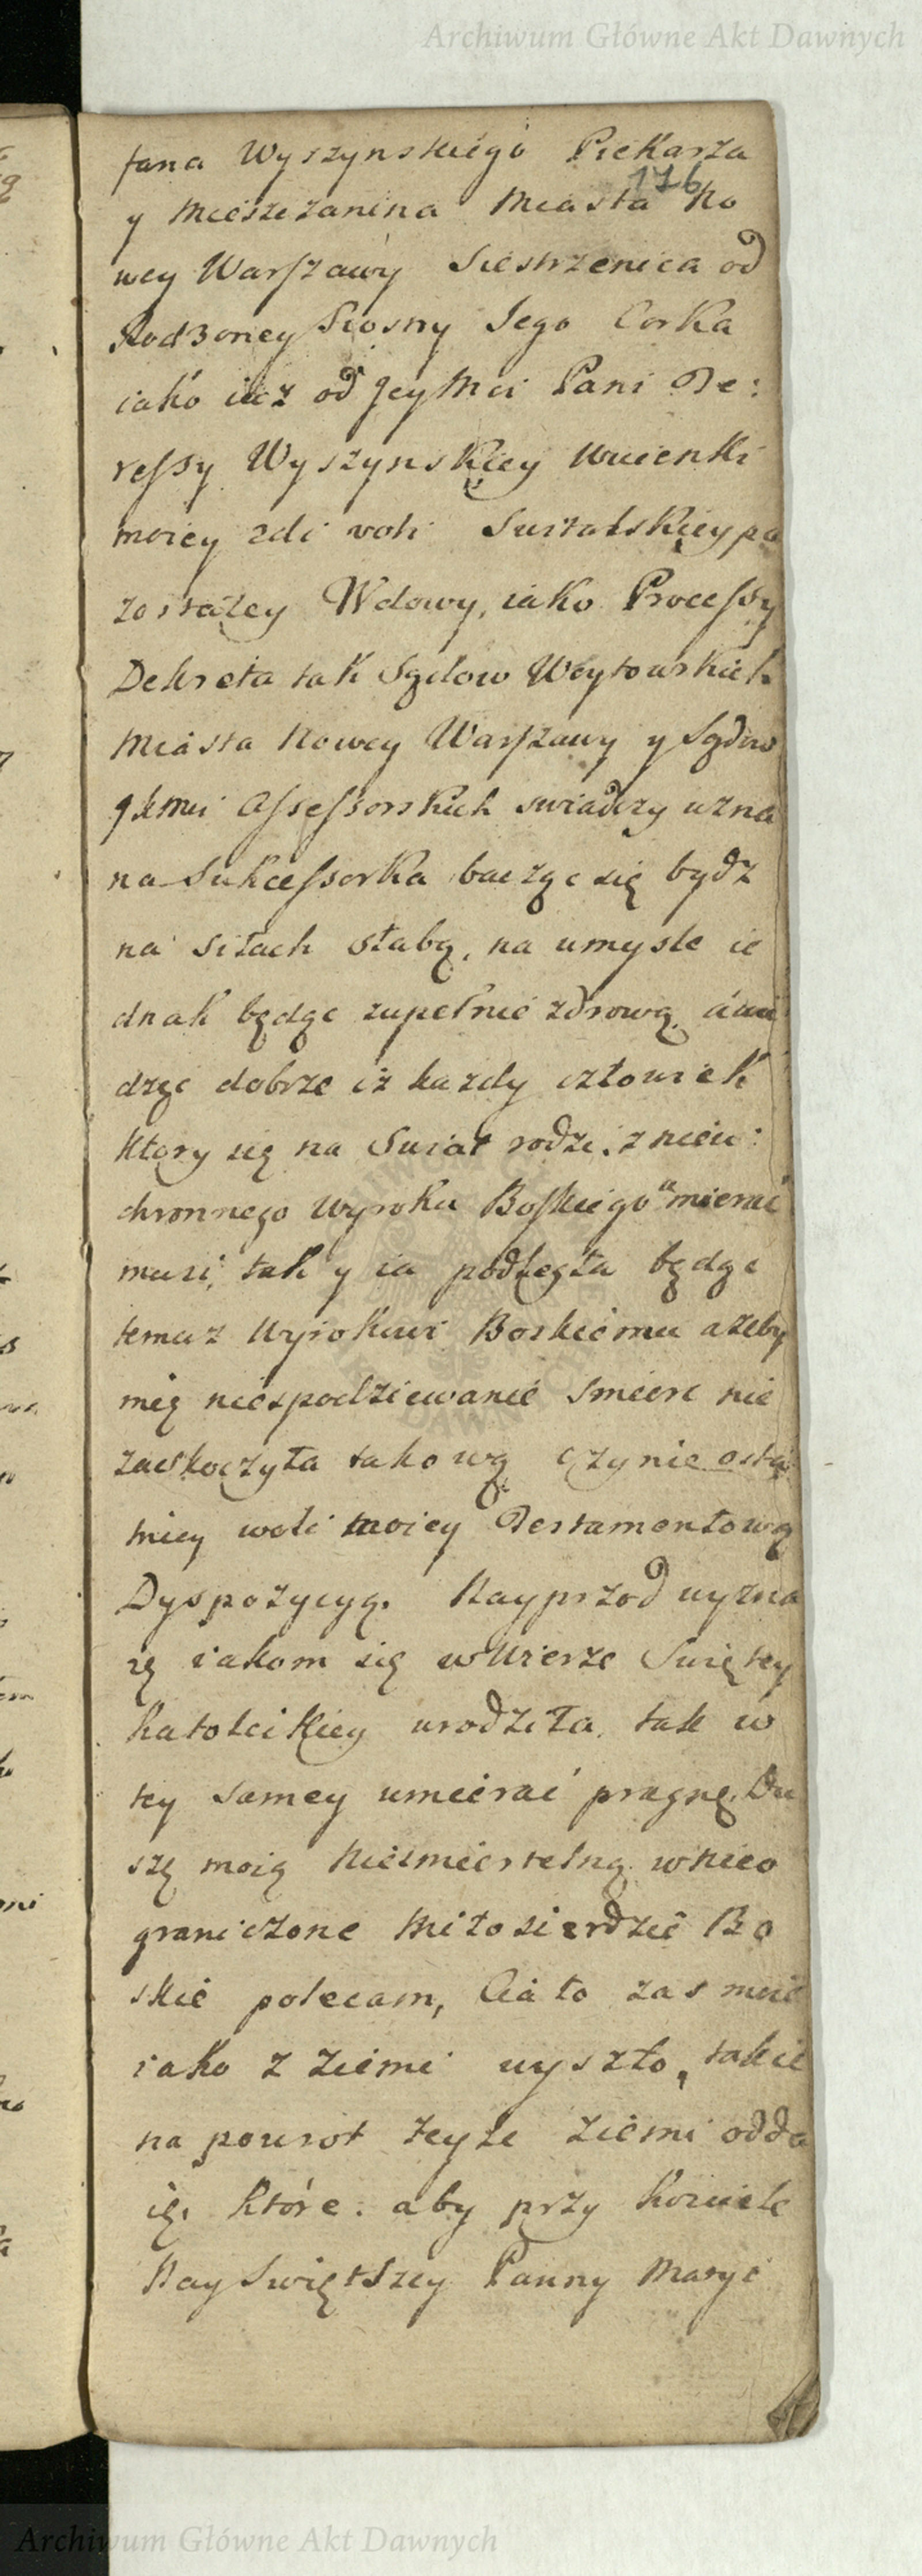 Archiwum Główne Akt Dawnych
fana Wyszynskiego Piekarza
176
y Mieszczanina Miasta No
wey Warszawy Siestrzenica od
Rodzoney Siosny Jego Corka
iako iesz od Jey Mci Pani Te:
ressy Wyszynskiey Wuienki
moiey zdi voti Suitalskiey po
zostałey Wdowy, iako Processy
Dekreta tak Sądow Woytowskich
Miasta Nowey Warszawy y Sądow
JKMci Assessorskich swiadczy uzna
na Sukcessorka baczge się bydz
na siłach słabą, na umysle ie
dnak będąc zupełnie zdrową, a wi
dząc dobrze iz kazdy człowiek
ktory się na Swiat rodzi, z nieu:
chronnego Wyroku Boskiego umierać
musi, tak y ia podległa będąc
temuz Wyrokowi Boskiemu azeby
mię niespodziewanie Smierc nie
zaskoczyła takową czynie osta
tniey woli moiey Testamentową
Dyspozycyą. Nayprzod wyzna
ię iakom się w Wierze Swiętey
Katolickiey urodziła, tak w
tey samey umierać pragnę. Du
szę moią Niesmiertelną w Nieo
graniczone Miłosierdzie Bo
skie polecam, Ciało zas moie
iako z Ziemi wyszło, takie
na powrot teyze Ziemi odda
ię, które. aby przy Kosciele
Nayswiętszey Panny Maryi
Archiwum Główne Akt Dawnych